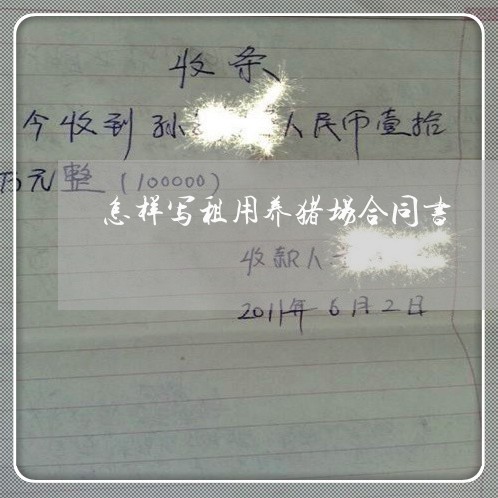 收条
今收到孙 人民币壹拾
万元整(100000)
怎样写租用养猪场合同书
收款人
2011年6月2日